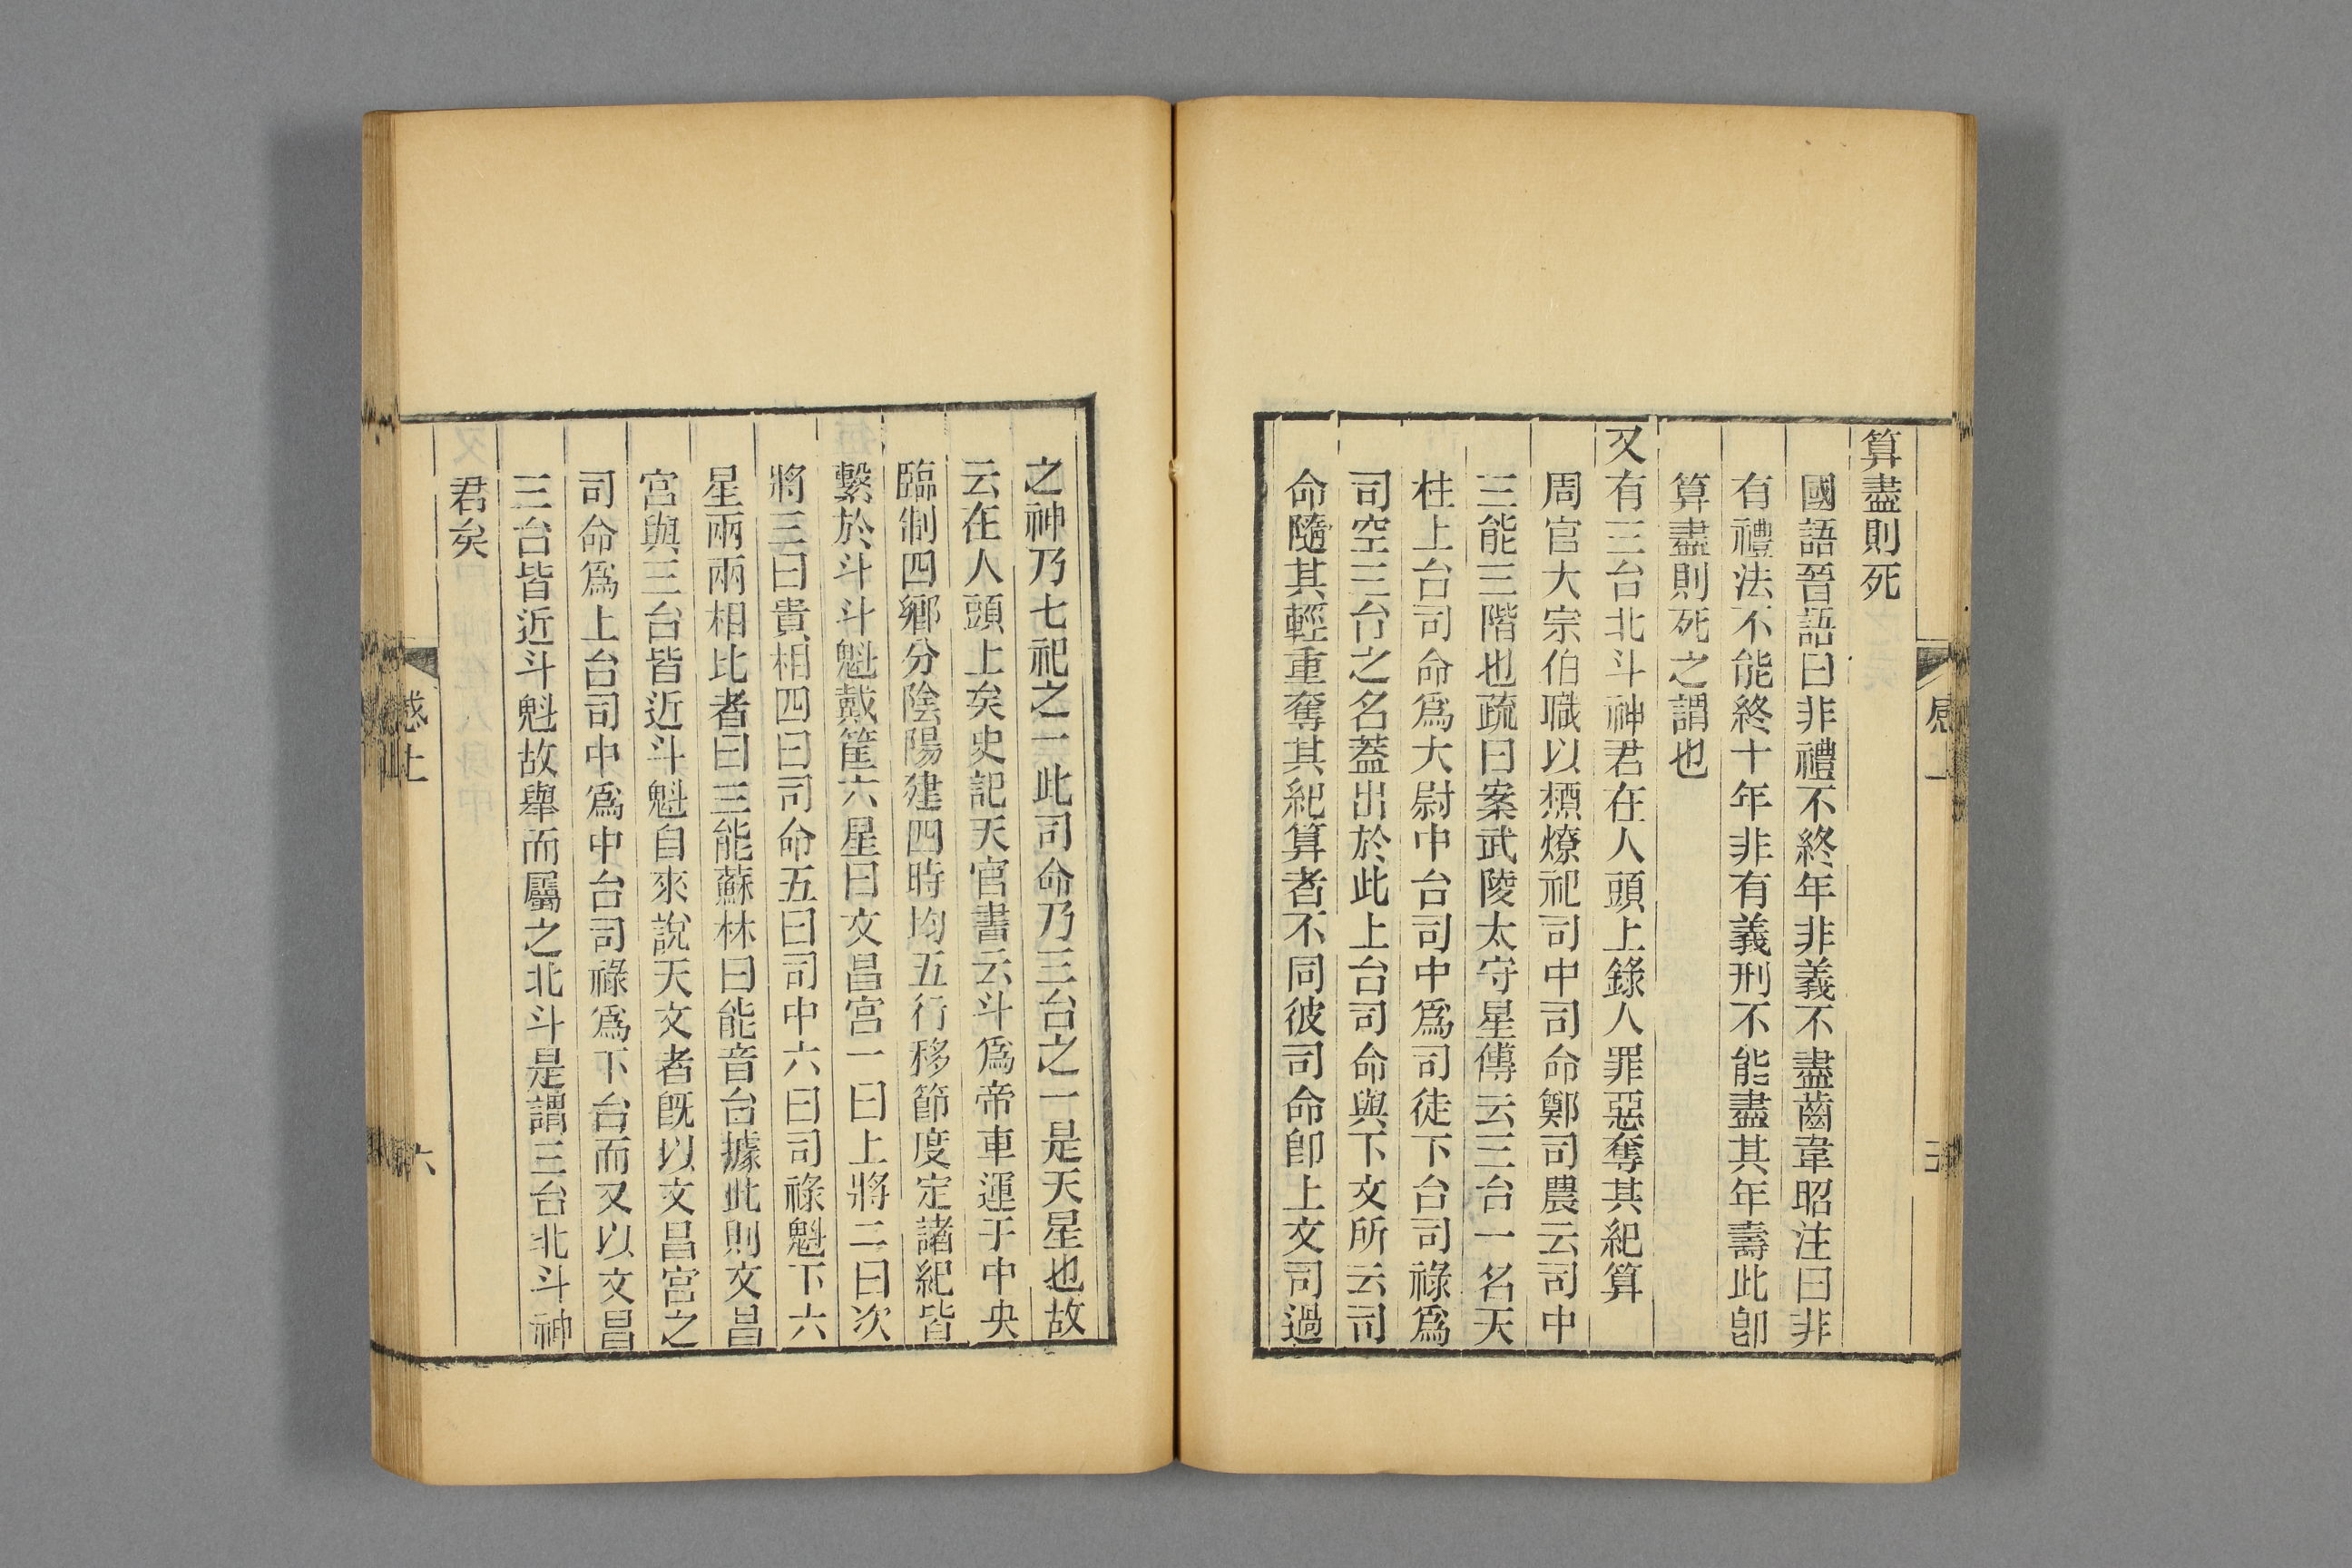 算盡則死
國語晉語曰非禮不終年非義不盡齒韋昭注曰非
有禮法不能終十年非有義刑不能盡其年壽此卽
算盡則死之謂也
又有三台北斗神君在人頭上錄人罪惡奪其紀算
周官大宗伯職以槱燎祀司中司命鄭司農云司中
三能三階也疏曰案武陵太守星傳云三台一名天
柱上台司命爲大尉中台司中爲司徒下台司祿爲
司空三台之名蓋出於此上台司命與下文所云司
命隨其輕重奪其紀算者不同彼司命卽上文司過
之神乃七祀之一此司命乃三台之一是天星也故
云在人頭上矣史記天官書云斗爲帝車運于中央
臨制四鄉分陰陽建四時均五行移節度定諸紀皆
繫於斗斗魁戴筐六星曰文昌宮一曰上將二曰次
將三曰貴相四曰司命五曰司中六曰司祿魁下六
星兩兩相比者曰三能蘇林曰能音台據此則文昌
宮與三台皆近斗魁自來說天文者旣以文昌宮之
司命爲上台司中爲中台司祿爲下台而又以文昌
三台皆近斗魁故舉而屬之北斗是謂三台北斗神
君矣
感上
六